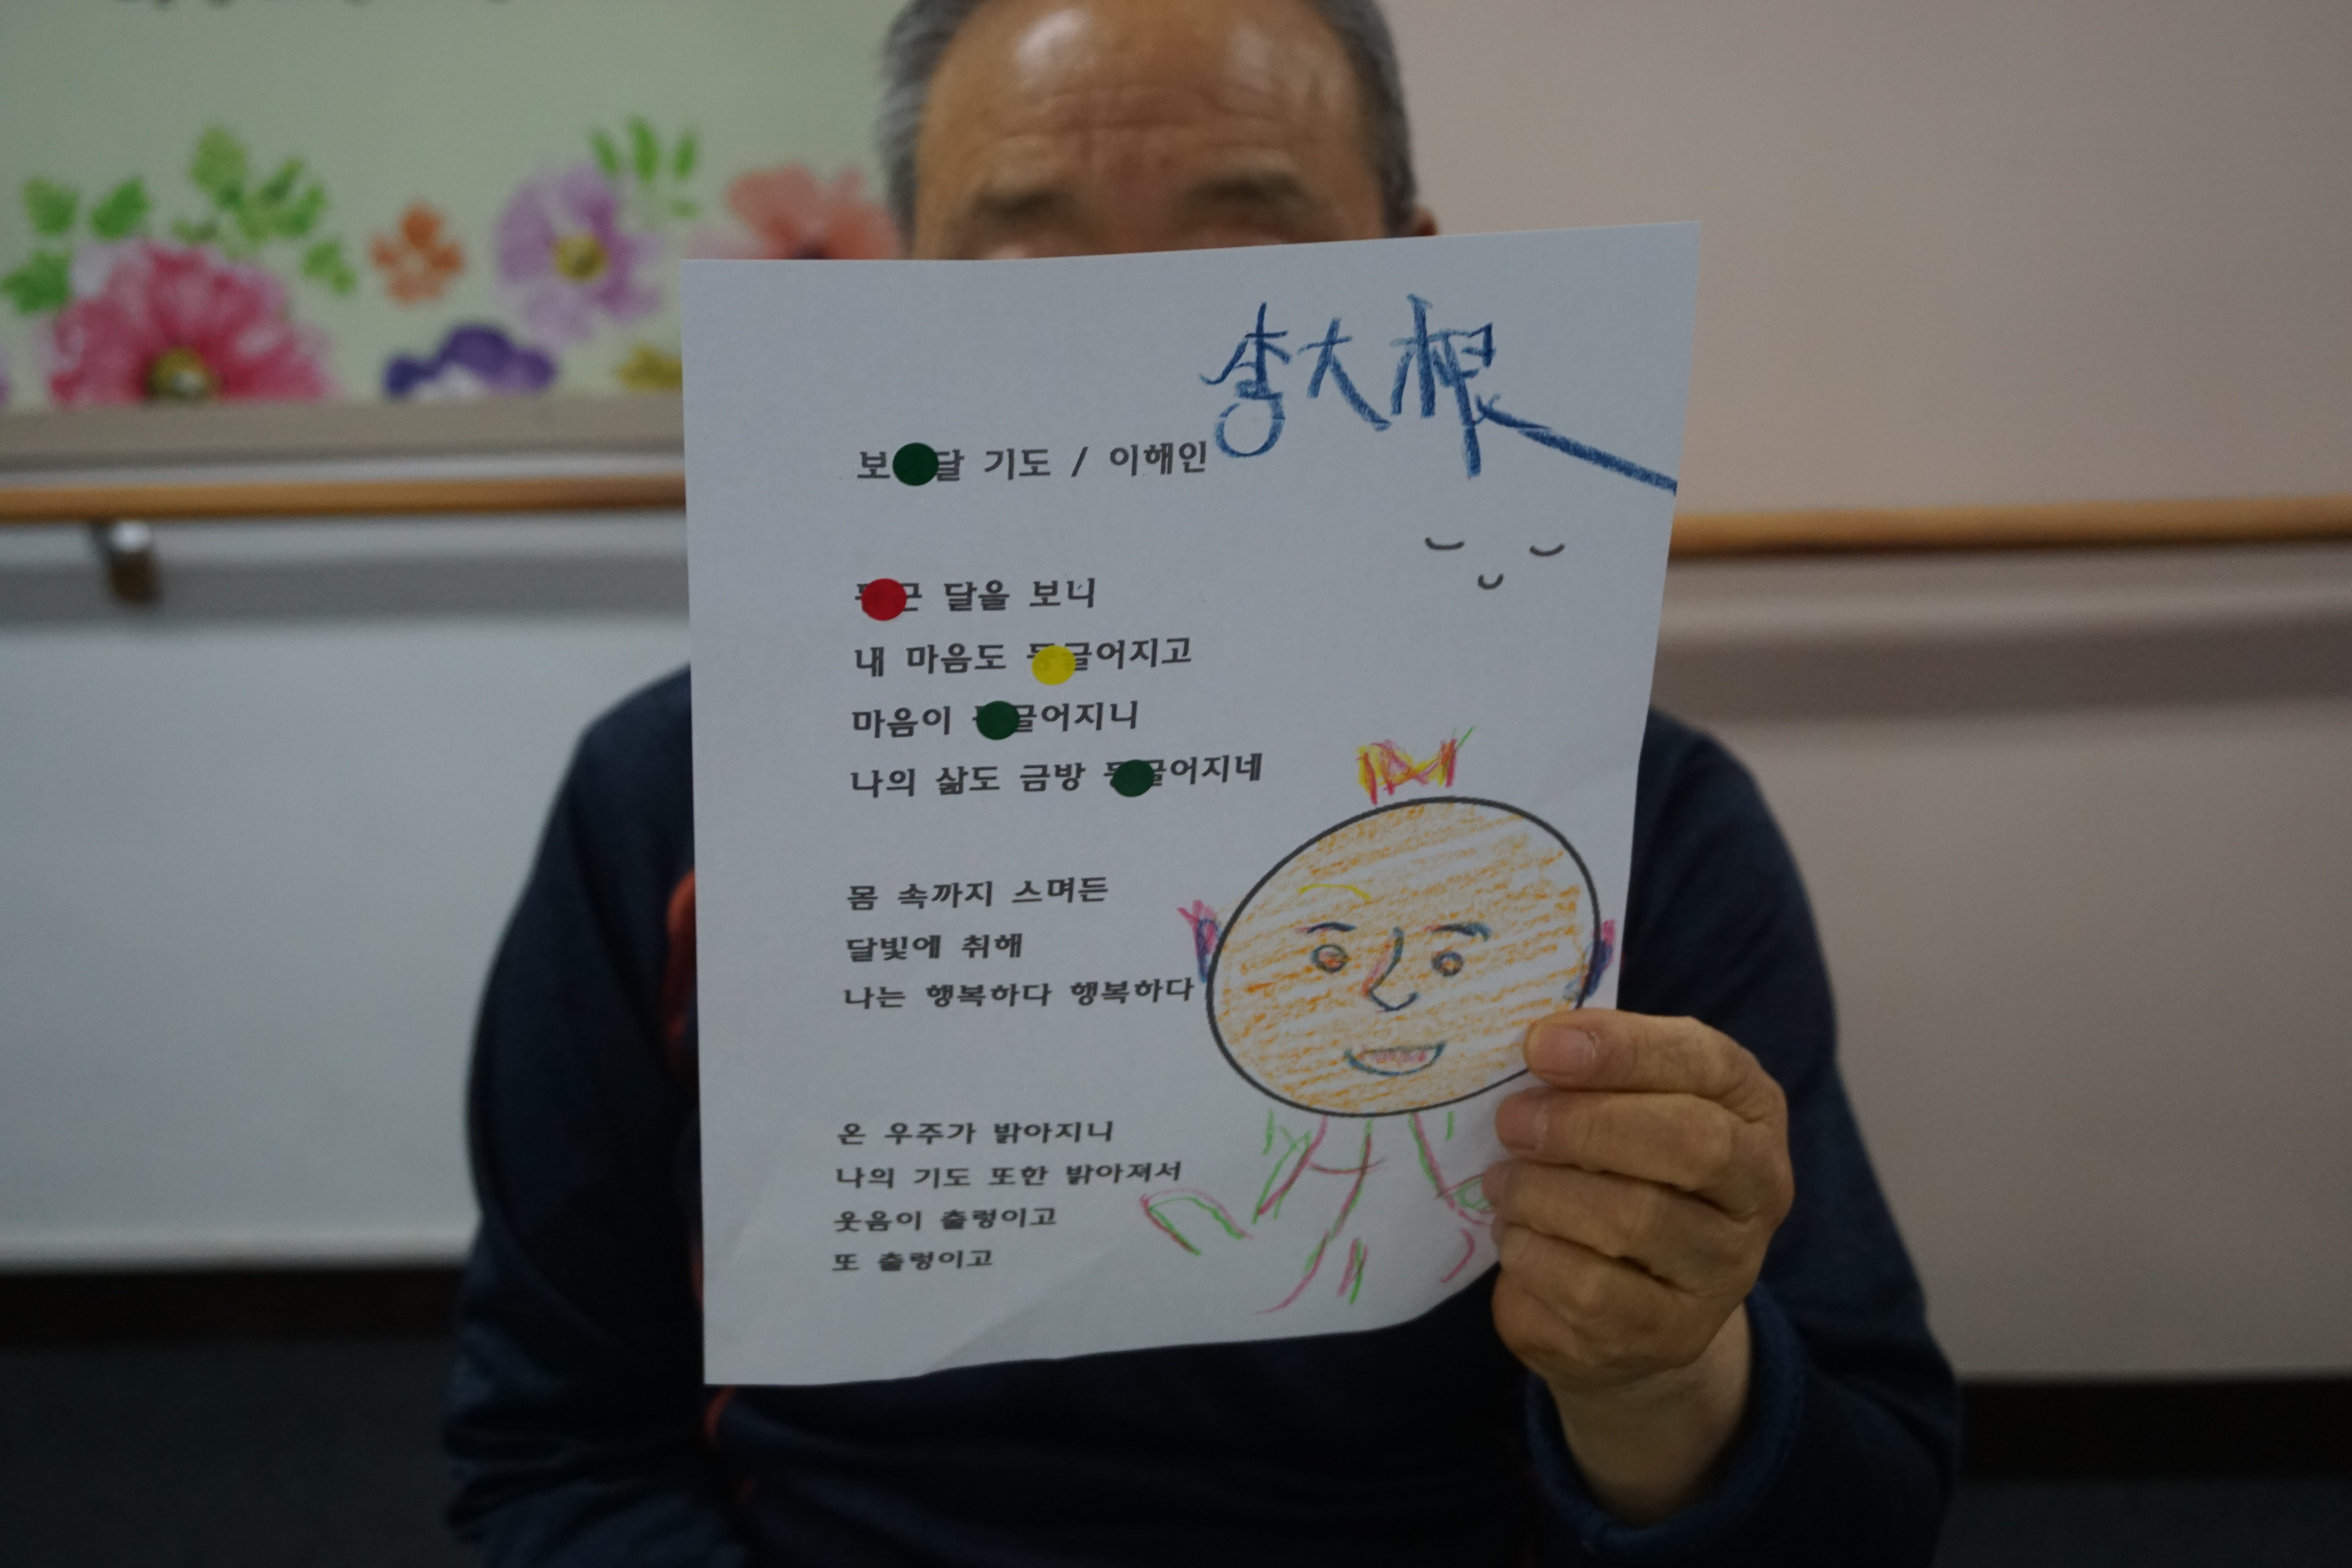 李大根
보 달 기도 / 이해인
근 달을 보니
내 마음도 둥글어지고
마음이 글어지니
나의 삶도 금방 둥글어지네
몸 속까지 스며든
달빛에 취해
나는 행복하다 행복하다
온 우주가 밝아지니
나의 기도 또한 밝아져서
웃음이 출렁이고
또 출렁이고